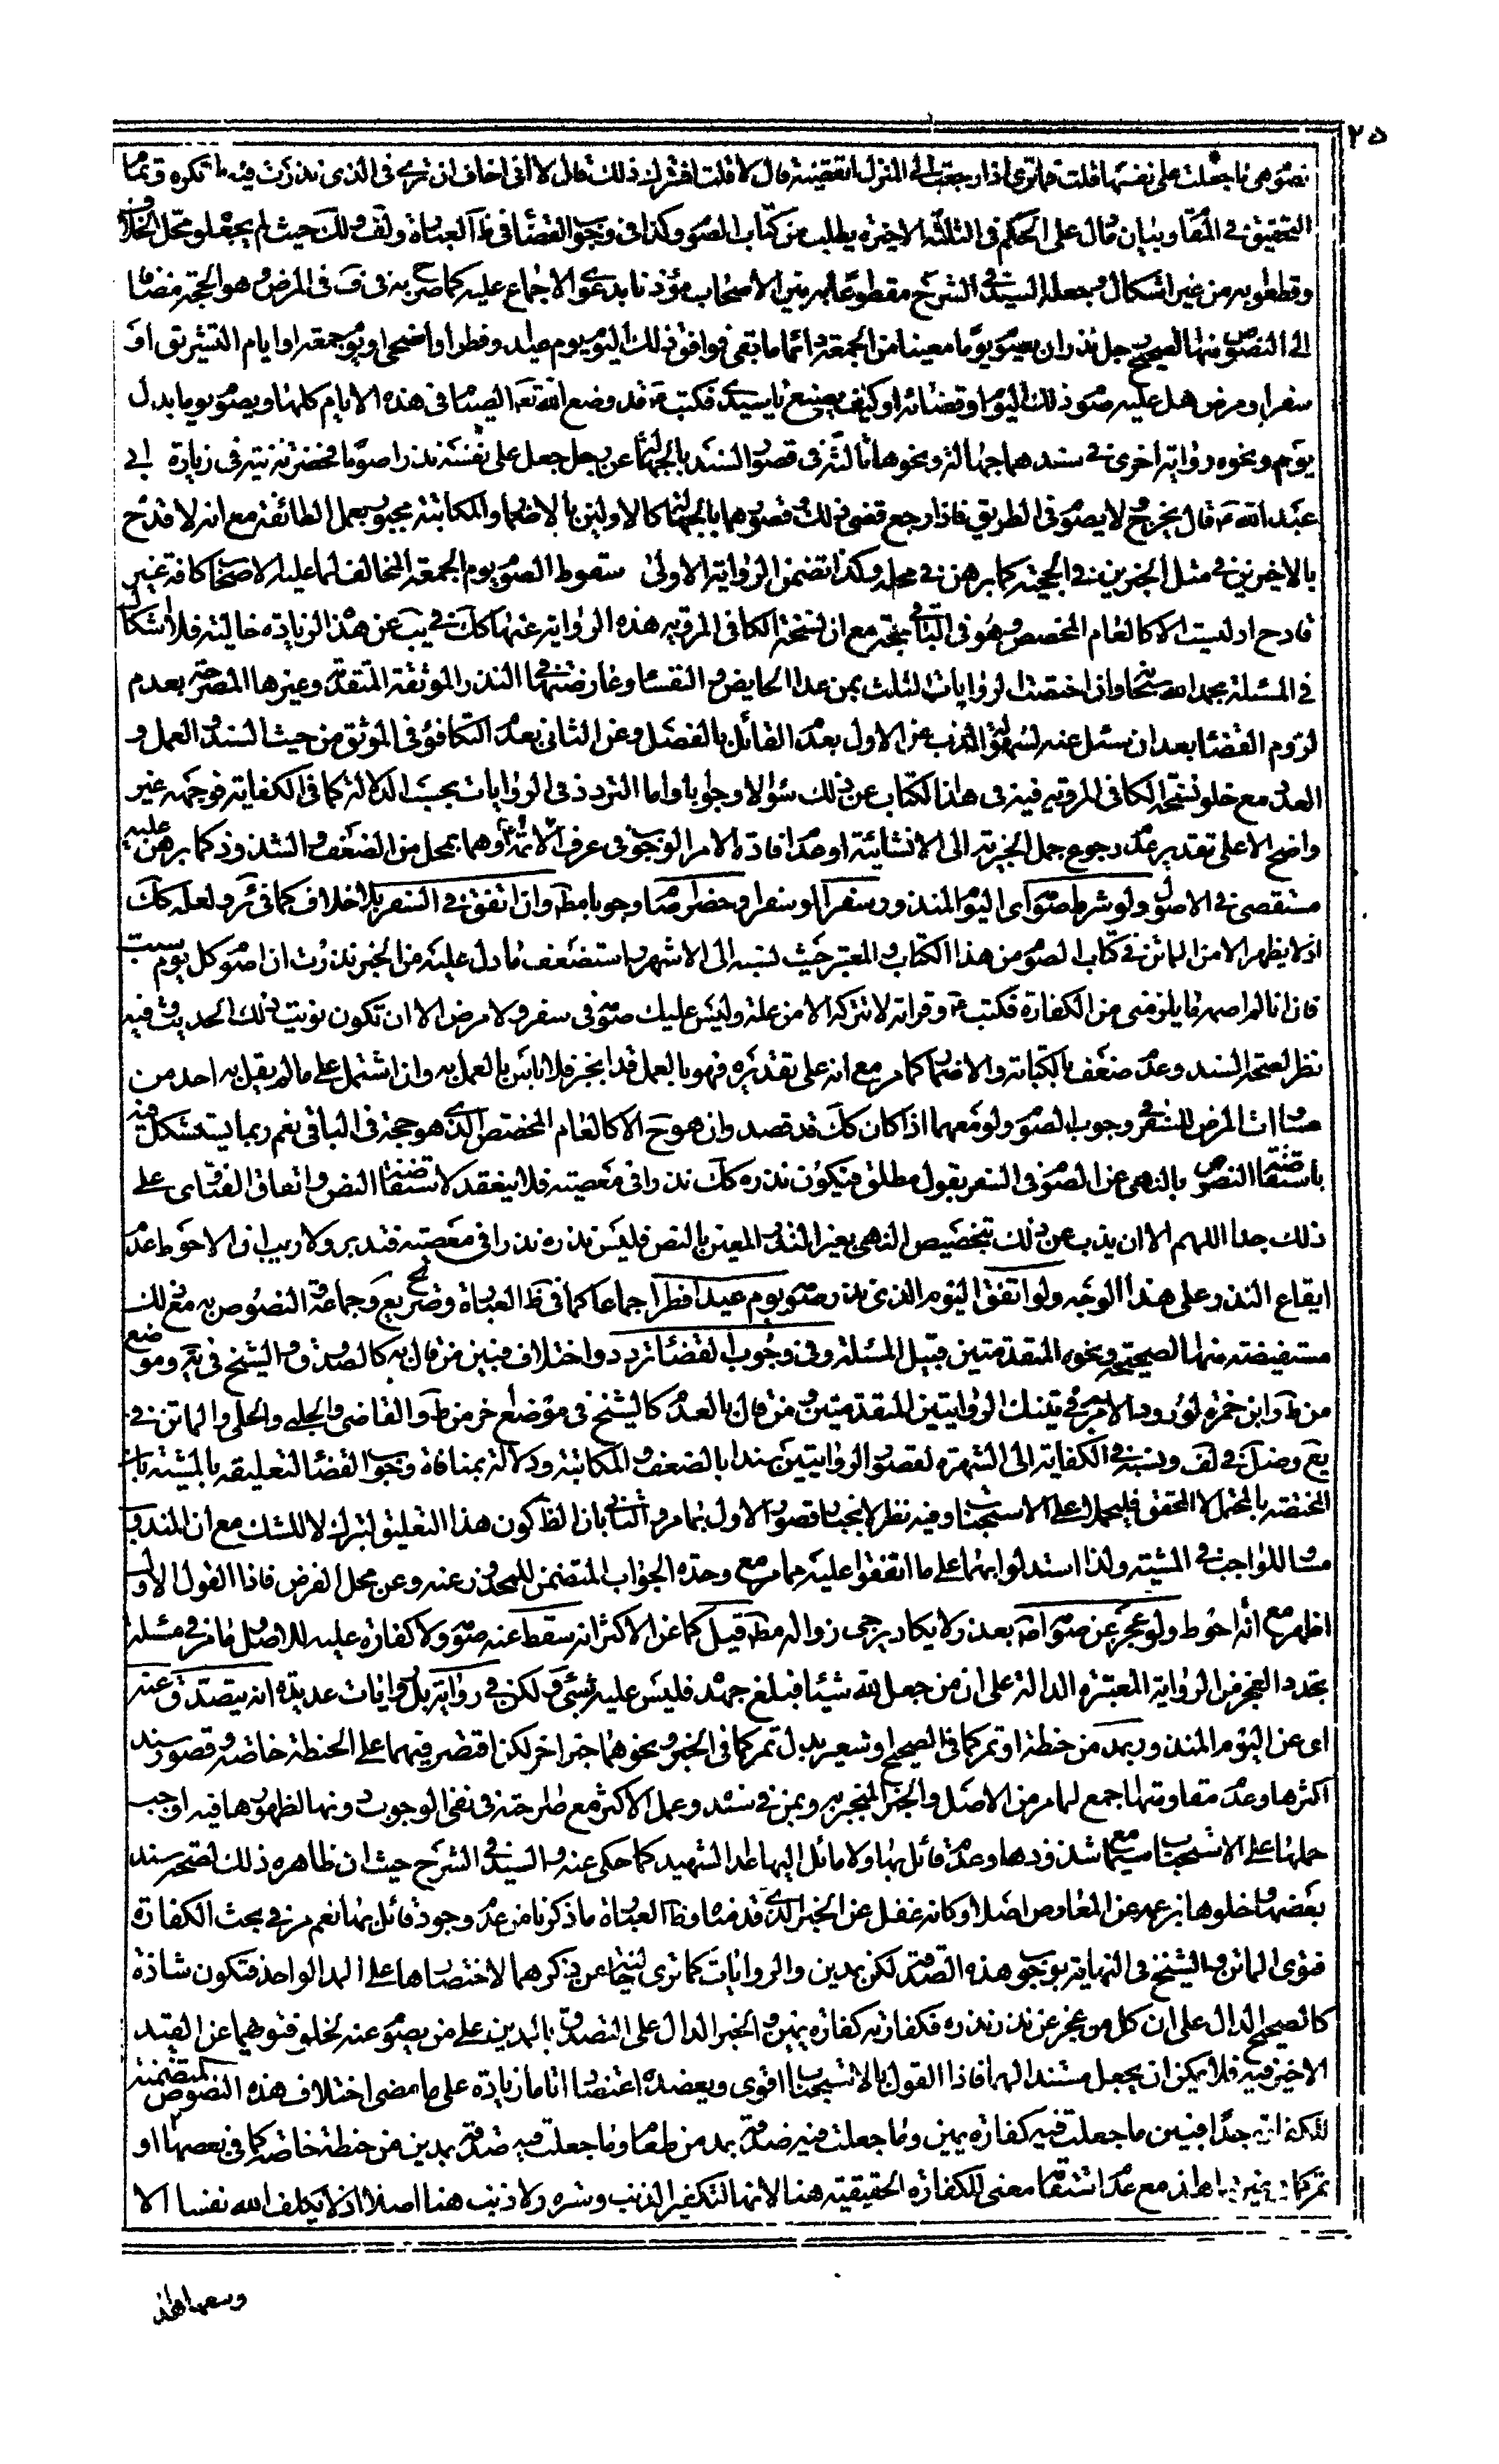 ٢٥
تصوم هي ما جعلت على نفسها قلت فما ترى اذا رجعت الى المنزل اتقضيه قال لا قلت افتترك ذلك قال لا انى اخاف ان ترى فى الذى نذرت فيه ما تكره وتمام
التحقيق فى المقام وبيان مال على الحكم فى الثلثة الاخيرة يطلب من كتاب الصوم وكذا فى وجوب القضاء فى ظاهر العبارة ولف وذلك حيث لم يجعلوه محل الخلاف
وقطعوا به من غير اشكال وجعله السيد فى الشرح مقطوعا به بين الاصحاب مؤذنا بدعوى الاجماع عليه كما صرح به فى ف فى المرض وهو الحجة مضافا
الى النصوص منها الصحيح رجل نذر ان يصوم يوما معينا من الجمعة دائما ما بقى فوافق ذلك اليوم يوم عيد وفطر او اضحى او يوم جمعة او ايام التشريق او
سفر او مرض هل عليه صوم ذلك اليوم او قضائه او كيف يصنع يا سيدى فكتب ع قد وضع الله تعالى الصيام فى هذه الايام كلها ويصوم يوما بدل
يوم ونحوه رواية اخرى فى سندهما جهالة ونحوها ثالثة فى قصور السند بالجهالة عن رجل جعل على نفسه نذرا صوما فحضرته نيته فى زيارة ابى
عبد الله ع قال يخرج ولا يصوم فى الطريق فاذا رجع قضى ذلك وقصورهما بالجهالة كالاولين بالاضمار والمكاتبة مجبور بعمل الطائفة مع انه لا قدح
بالاخيرين فى مثل الخبرين فى الحجية كما برهن فى محله وكذا تضمن الرواية الاولى سقوط الصوم يوم الجمعة المخالف لما عليه الاصحاب كافة غير
قادح اذ ليست الا كالعام المخصص وهو فى الباقى حجة مع ان نسخة الكافى المروية هذه الرواية عنها كك فى يب عن هذه الزيادة خالية فلا اشكال
فى المسئلة بحمد الله سبحانه وان اختصت الروايات الثلث بمن عدا الحايض والنفساء وعارضتها فى النذر الموثقة المتقدمة وغيرها المصرحة بعدم
لزوم القضاء بعد ان سئل عنه لسهولة الذب عن الاول بعدم القائل بالفصل وعن الثانى بعدم التكافؤ فى الموثق من حيث السند والعمل و
العدد مع خلو نسخة الكافى المروية فيه فى هذا الكتاب عن ذلك سؤالا وجوابا واما التردد فى الروايات بحسب الدلالة كما فى الكفاية فوجهه غير
واضح الا على تقدير عدم رجوع جمل الخبرية الى الانشائية او عدم افادة الامر الوجوب فى عرف الائمة ع وهما بمحل من الضعف والشذوذ كما برهن عليه
مستقصى فى الاصول ولو شرط صوم اى اليوم المنذور سفرا لو سفرا وحضرا صام وجوبا مط وان اتفق فى السفر بلا خلاف كما فى ئر ولعله كك
اذ لا يظهر الا من الماتن فى كتاب الصوم من هذا الكتاب والمعتبر حيث نسبه الى الاشهر واستضعف ما دل عليه من الخبر نذرت ان اصوم كل يوم سبت
فان انا لم اصمه ما يلزمنى من الكفارة فكتب ع وقراته لا تتركه الا من علة وليس عليك صومه فى سفر ولا مرض الا ان تكون نويت ذلك الحديث وفيه
نظر لصحة السند وعدم ضعف بالكتابة والاضمار كما مر مع انه على تقديره فهو بالعمل قد انجبر فلا باس بالعمل به وان اشتمل على ما لم يقل به احد من
مساوات المرض للسفر فى وجوب الصوم ولو معهما اذا كان كك قد قصد وان هو ح الا كالعام المخصص الذى هو حجة فى الباقى نعم ربما يستشكل فيه
باستفاضة النصوص بالنهى عن الصوم فى السفر بقول مطلق فيكون نذره كك نذرا فى معصية فلا ينعقد لاستفاضة النص واتفاق الفتاوى على
ذلك جدا اللهم الا ان يذب عن ذلك بتخصيص النهى بغير المنذور المعين بالنص فليس نذره نذرا فى معصية فتدبر ولا ريب ان الاحوط عدم
ايقاع النذر على هذا الوجه ولو اتفق اليوم الذى نذر صومه يوم عيد افطر اجماعا كما فى ظ العبارة وصريح يع وجماعة والنصوص به مع ذلك
مستفيضة منها الصحيحة ونحوه المتقدمتين قبيل المسئلة وفى وجوب القضاء تردد واختلاف فبين من قال به كالصدوق والشيخ فى ية وموضع
من ط وابن حمزة لورود الامر به فى تينك الروايتين المتقدمتين ومن قال بالعدم كالشيخ فى موضع اخر من ط والقاضى والحلبى والحلى والماتن فى
يع وفضل فى لف ونسبه فى الكفاية الى الشهرة لقصور الروايتين سندا بالضعف والمكاتبة ودلالة بمنافاة وجوب القضاء لتعليقه بالمشية بان
المختصة بالمحتمل لا المحقق فليحملا على الاستحباب وفيه نظر لانجبار قصور الاول بما مر والثانى بان الظ كون هذا التعليق للتبرك لا للشك مع ان المندوب
مساو للواجب فى المشية ولذا استدلوا بهما على ما اتفقوا عليه مما مر مع وحدة الجواب المتضمن للمحذور عنه وعن محل الفرض فاذا القول الاول
اظهر مع انه احوط ولو عجز عن صومه اصلا بعذر لا يكاد يرجى زواله مط قيل كما عن الاكثر انه سقط عنه صومه ولا كفارة عليه للاصل وما مر فى مسئلة
تجدد العجز من الرواية المعتبرة الدالة على ان من جعل لله شيئا فبلغ جهده فليس عليه شيئ ولكن فى رواية بل روايات عديدة انه يتصدق عنه
اى عن اليوم المنذور بمد من حنطة او تمر كما فى الصحيح او شعير بدل تمر كما فى الخبر ونحوهما خبر اخر لكن اقتصر فيهما على الحنطة خاصة وقصور سند
اكثرها وعدم مقاومتها اجمع لما مر من الاصل والخبر المنجبر به وبمن فى سنده وعمل الاكثر مع صراحته فى نفى الوجوب دونها لظهورها فيه اوجب
حملها على الاستحباب سيما مع شذوذها وعدم قائل بها ولا مائل اليها عدا الشهيد كما حكى عنه والسيد فى الشرح حيث ان ظاهره ذلك لصحة سند
بعضها وخلوها بزعمه عن المعارض اصلا وكانه غفل عن الخبر الذى قدمناه وظ العبارة ما ذكرنا من عدم وجود قائل بها نعم مر فى بحث الكفارة
فتوى الماتن والشيخ فى النهاية بوجوب هذه الصدقة لكن بمدين والروايات كما ترى ليست عن ذكرهما لاختصاصها على المد الواحد فتكون شاذة
كالصحيح الدال على ان كل من عجز عن نذر نذره فكفارته كفارة يمين والخبر الدال على التصدق بالمدين على من يصوم عنه لخلو فتوهما عن القيد
الاخير فيه فلا يمكن ان يجعل مستندا لهما فاذا القول بالاستحباب اقوى ويعضده اعتضادا تاما زيادة على ما مضى اختلاف هذه النصوص المتضمنة
للكفارة جدا فبين ما جعلت فيه كفارة يمين وما جعلت فيه صدقة بمد من طعام وما جعلت فيه صدقة بمدين من حنطة خاصة كما فى بعضها او
تمر كما هذا مع عدم استقامة معنى للكفارة الحقيقية هنا لانها لتكفير الذنب وستره ولا ذنب هنا اصلا اذ لا يكلف الله نفسا الا
وسعها هذا